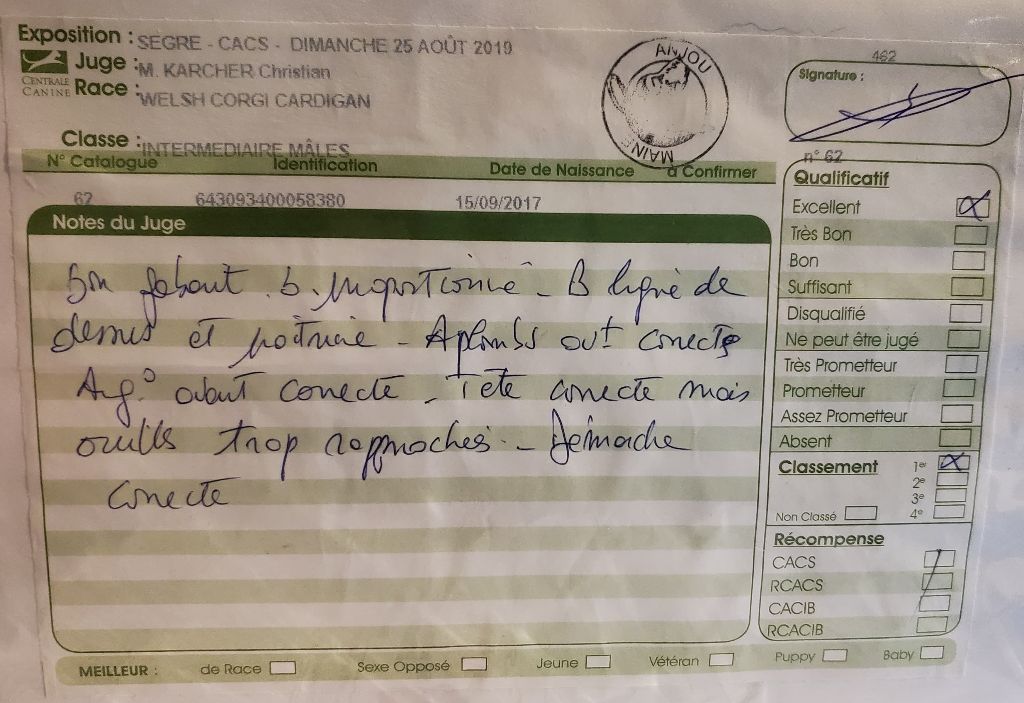 Exposition : SEGRE - CACS - DIMANCHE 25 AOÛT 2019
Juge : M. KARCHER Christian
CENTRALE CANINE
Race : WELSH CORGI CARDIGAN
Classe : INTERMEDIAIRE MÂLES
ANJOU
MAINE
462
Signature :
N° Catalogue Identification Date de Naissance à Confirmer
62 643093400058380 15/09/2017
n° 62
Notes du Juge
Bon gabarit. b. proportionné - B ligne de
dessus et poitrine - Aplombs avt corrects
Ang° avant correcte - Tête correcte mais
oreilles trop rapprochées - Démarche
correcte
Qualificatif
Excellent
Très Bon
Bon
Suffisant
Disqualifié
Ne peut être jugé
Très Prometteur
Prometteur
Assez Prometteur
Absent
Classement 1er
2e
3e
Non Classé 4e
Récompense
CACS
RCACS
CACIB
RCACIB
MEILLEUR : de Race Sexe Opposé Jeune Vétéran Puppy Baby